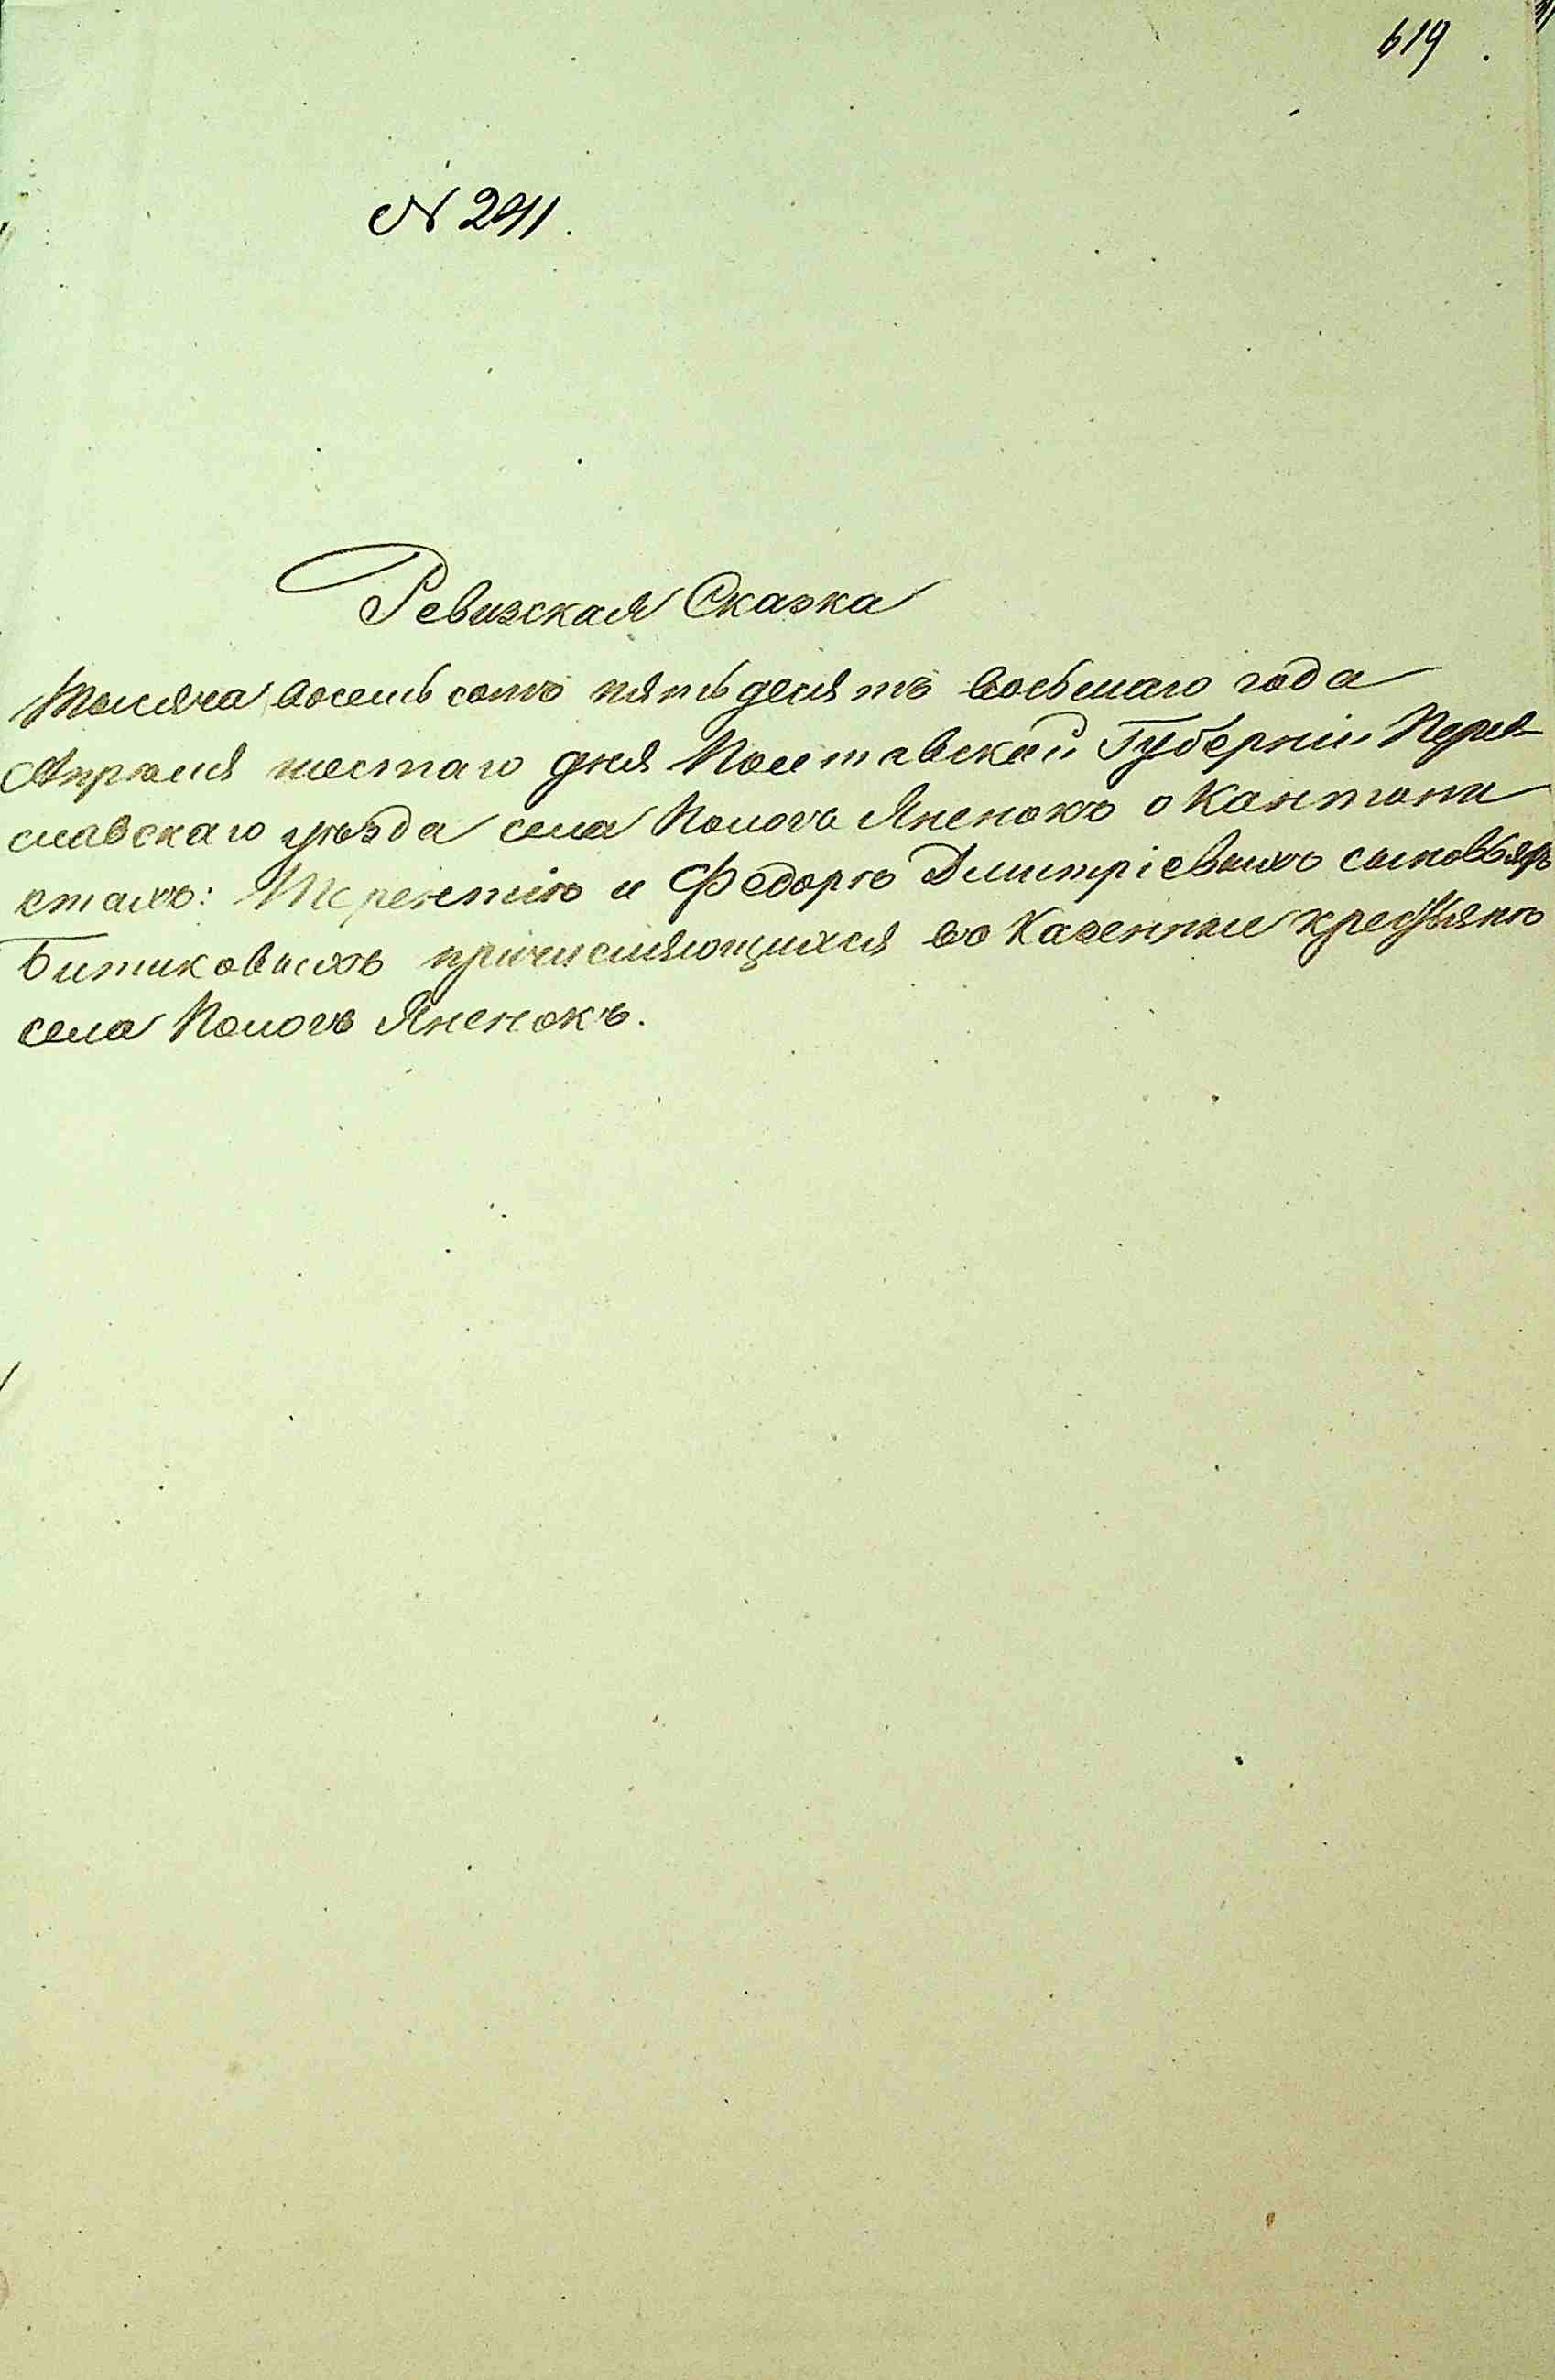 619.
№ 291.
Ревизская Сказка
Тысяча восемь сотъ пятьдесятъ восьмаго года
Апрѣля шестаго дня Полтавской Губерніи Перея-
славскаго уѣзда села Пологъ Яненокъ о Кантони
стахъ: Терентію и Федорѣ Дмитріевыхъ сыновьяхъ
Битиковыхъ причисляющихся въ Казенные крестьянѣ
села Пологъ Яненокъ.